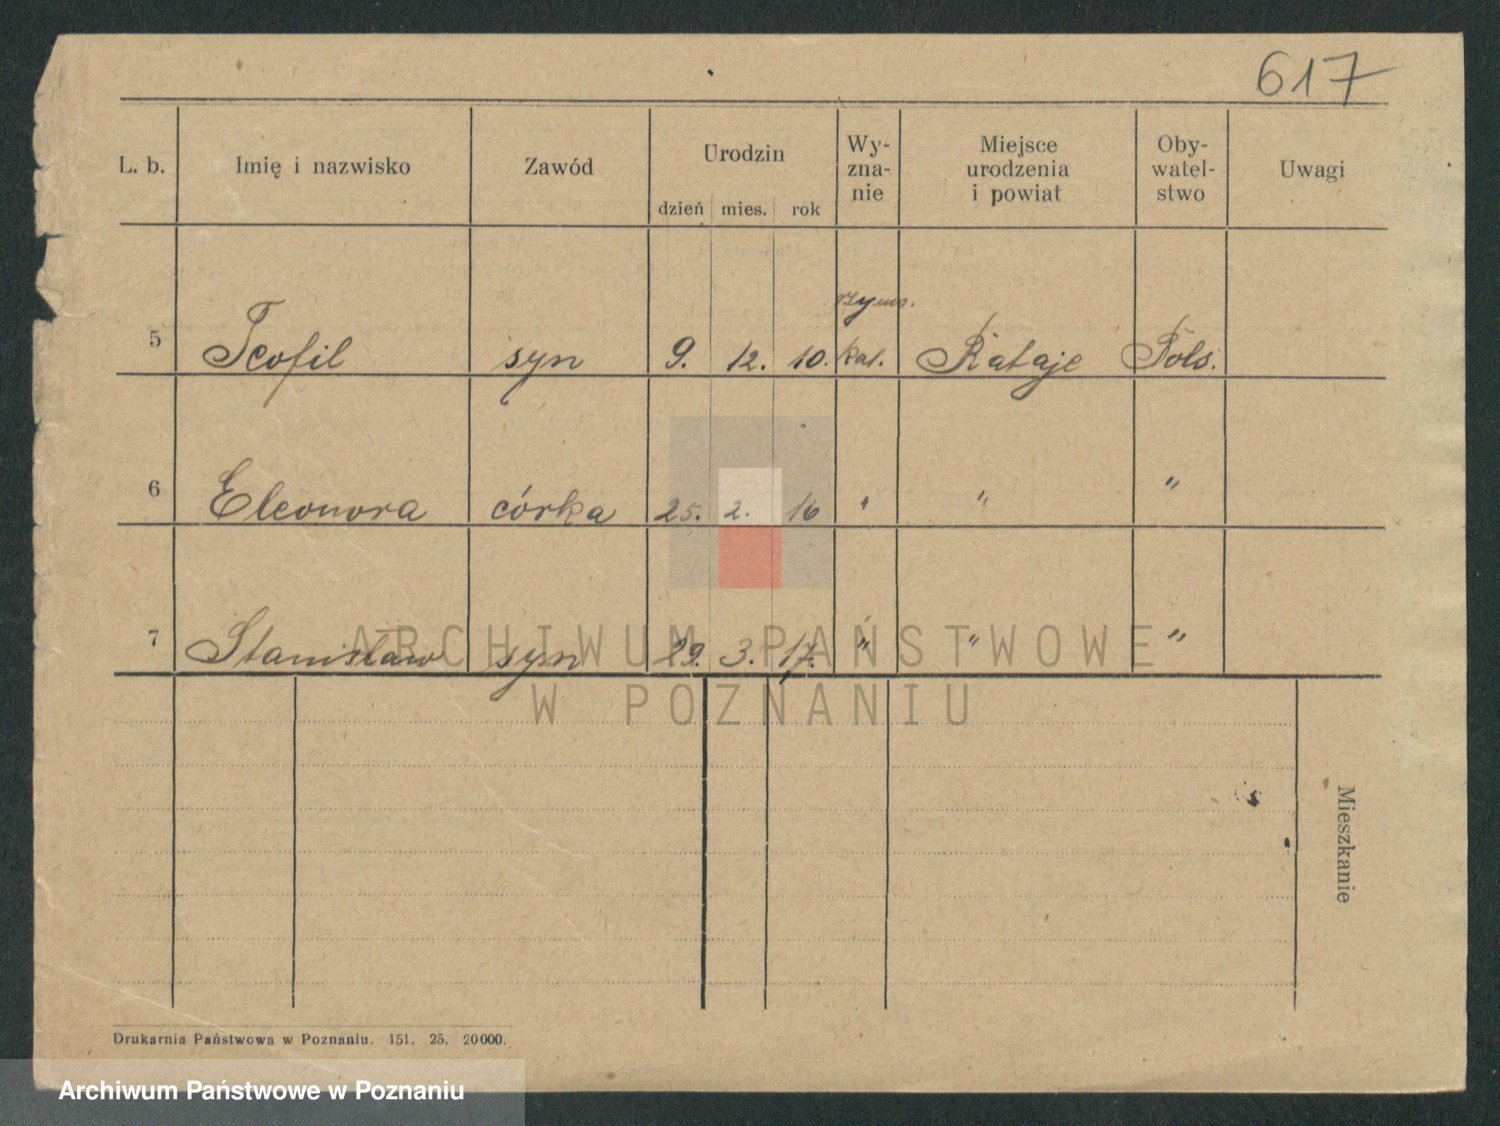 617
L. b. Imię i nazwisko Zawód Urodzin Wy-zna-nie Miejsce urodzenia i powiat Oby-watel-stwo Uwagi
dzień mies. rok
rzyms.
5 Teofil syn 9. 12. 10. kat. Rataje Pols.
6 Eleonora córka 25. 2. 16 " " "
7 Stanisław syn 29. 3. 17. " " "
ARCHIWUM PAŃSTWOWE
W POZNANIU
Mieszkanie
Drukarnia Państwowa w Poznaniu. 151. 25. 20000.
Archiwum Państwowe w Poznaniu